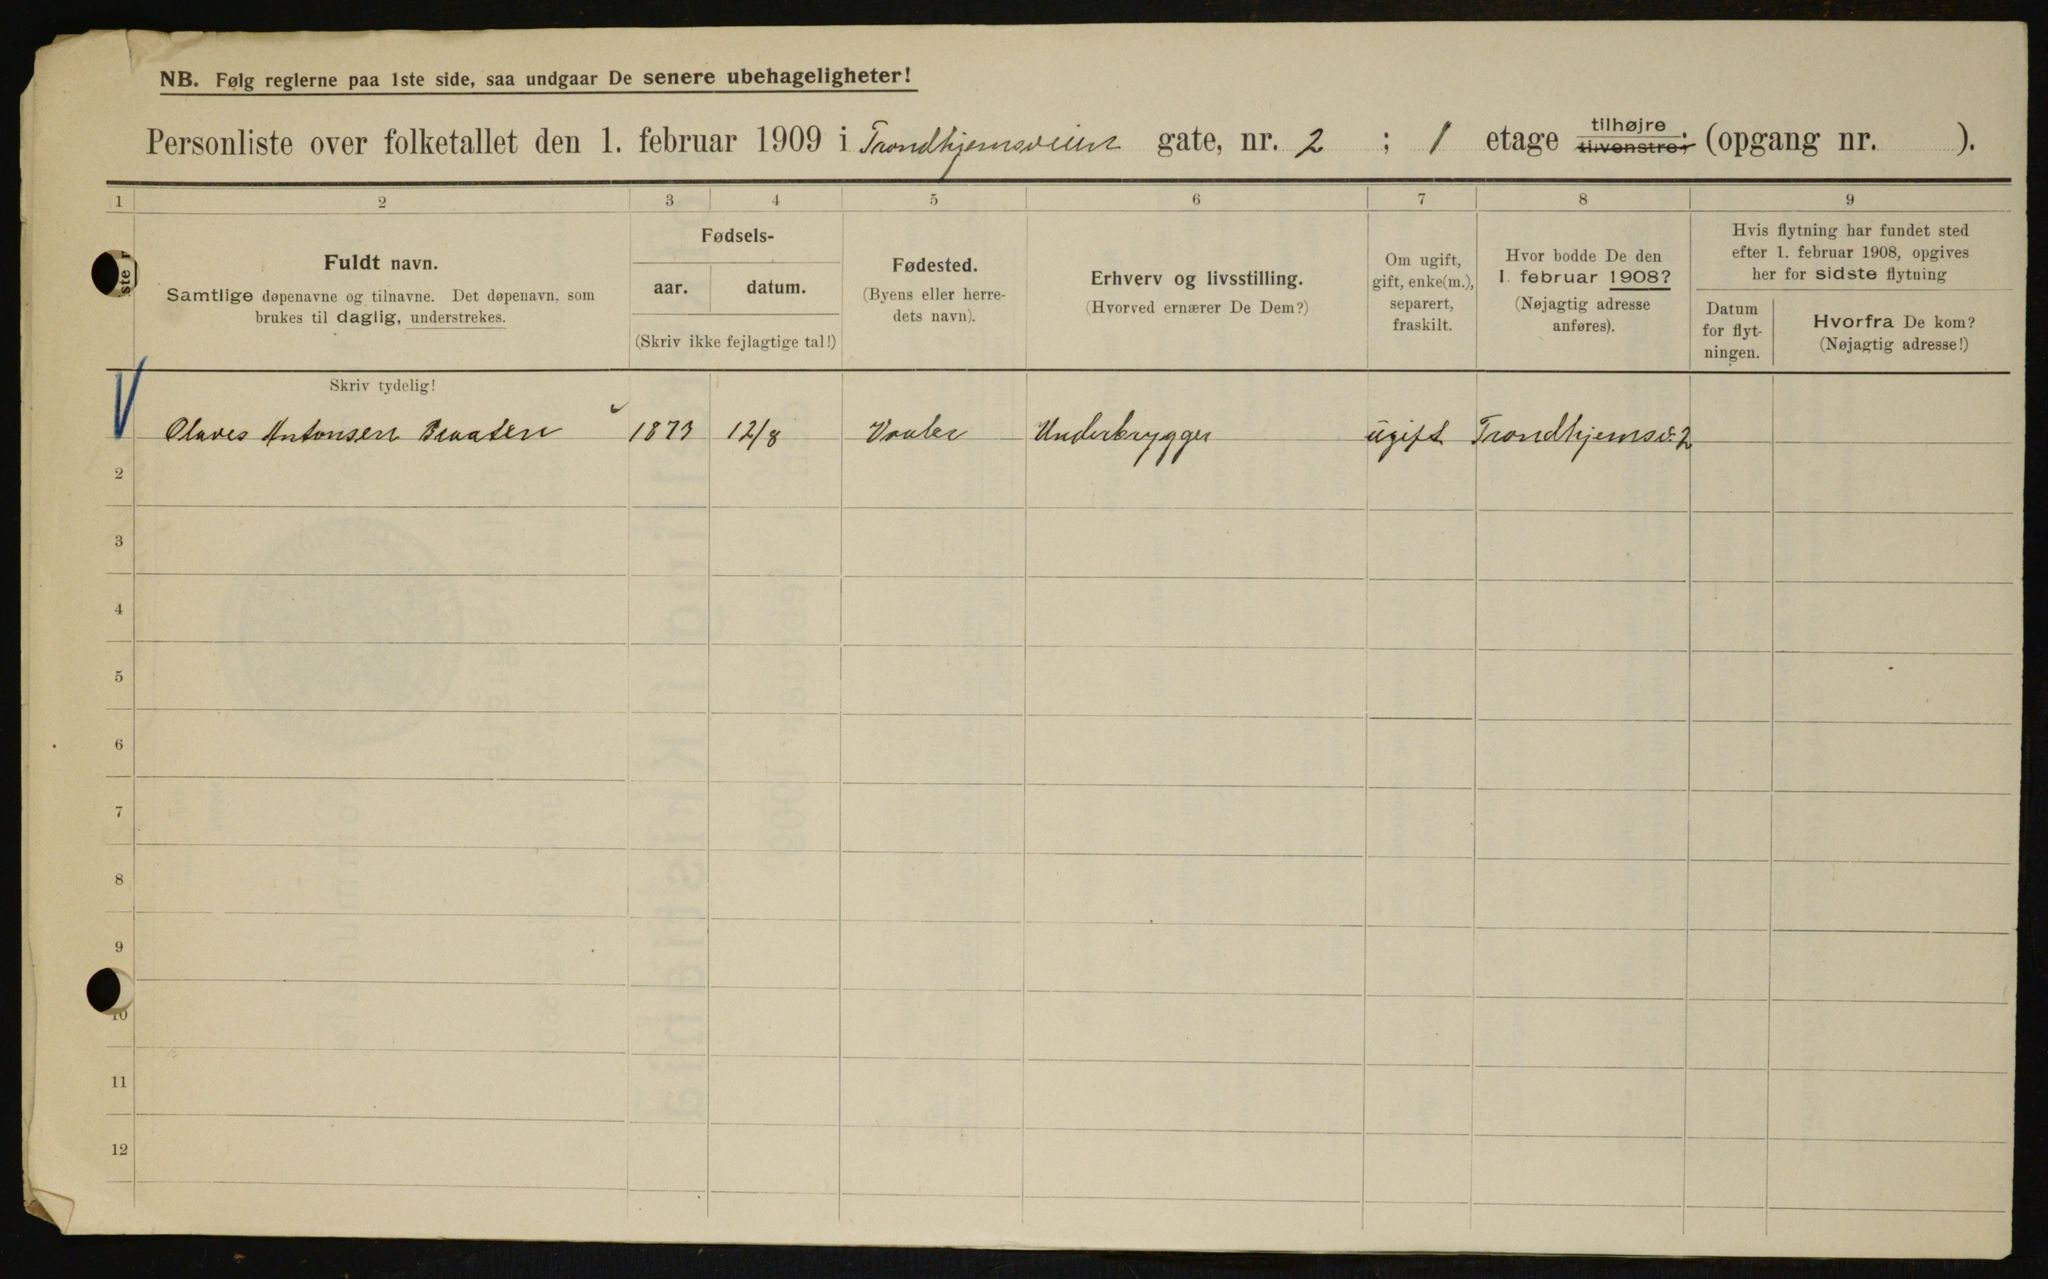 NB. Følg reglerne paa 1ste side, saa undgaar De senere ubehageligheter!
Personliste over folketallet den 1. februar 1909 i Trondhjemsveien gate, nr. 2 ; 1 etage tilhøjre. tilvenstre, (opgang nr. ).
1 2 3 4 5 6 7 8 9
Fuldt navn.
Samtlige døpenavne og tilnavne. Det døpenavn, som
brukes til daglig, understrekes.
Fødsels-
aar. datum.
(Skriv ikke fejlagtige tal!)
Fødested.
(Byens eller herre-
dets navn).
Erhverv og livsstilling.
(Hvorved ernærer De Dem?)
Om ugift,
gift, enke(m.),
separert,
fraskilt.
Hvor bodde De den
1. februar 1908?
(Nøjagtig adresse
anføres).
Hvis flytning har fundet sted
efter 1. februar 1908, opgives
her for sidste flytning
Datum
for flyt-
ningen.
Hvorfra De kom?
(Nøjagtig adresse!)
Skriv tydelig!
Olaves Antonsen Braaten 1873 12/8 Vaaler Underbrygger ugift Trondhjemsv. 2
2
3
4
5
6
7
8
9
10
11
12